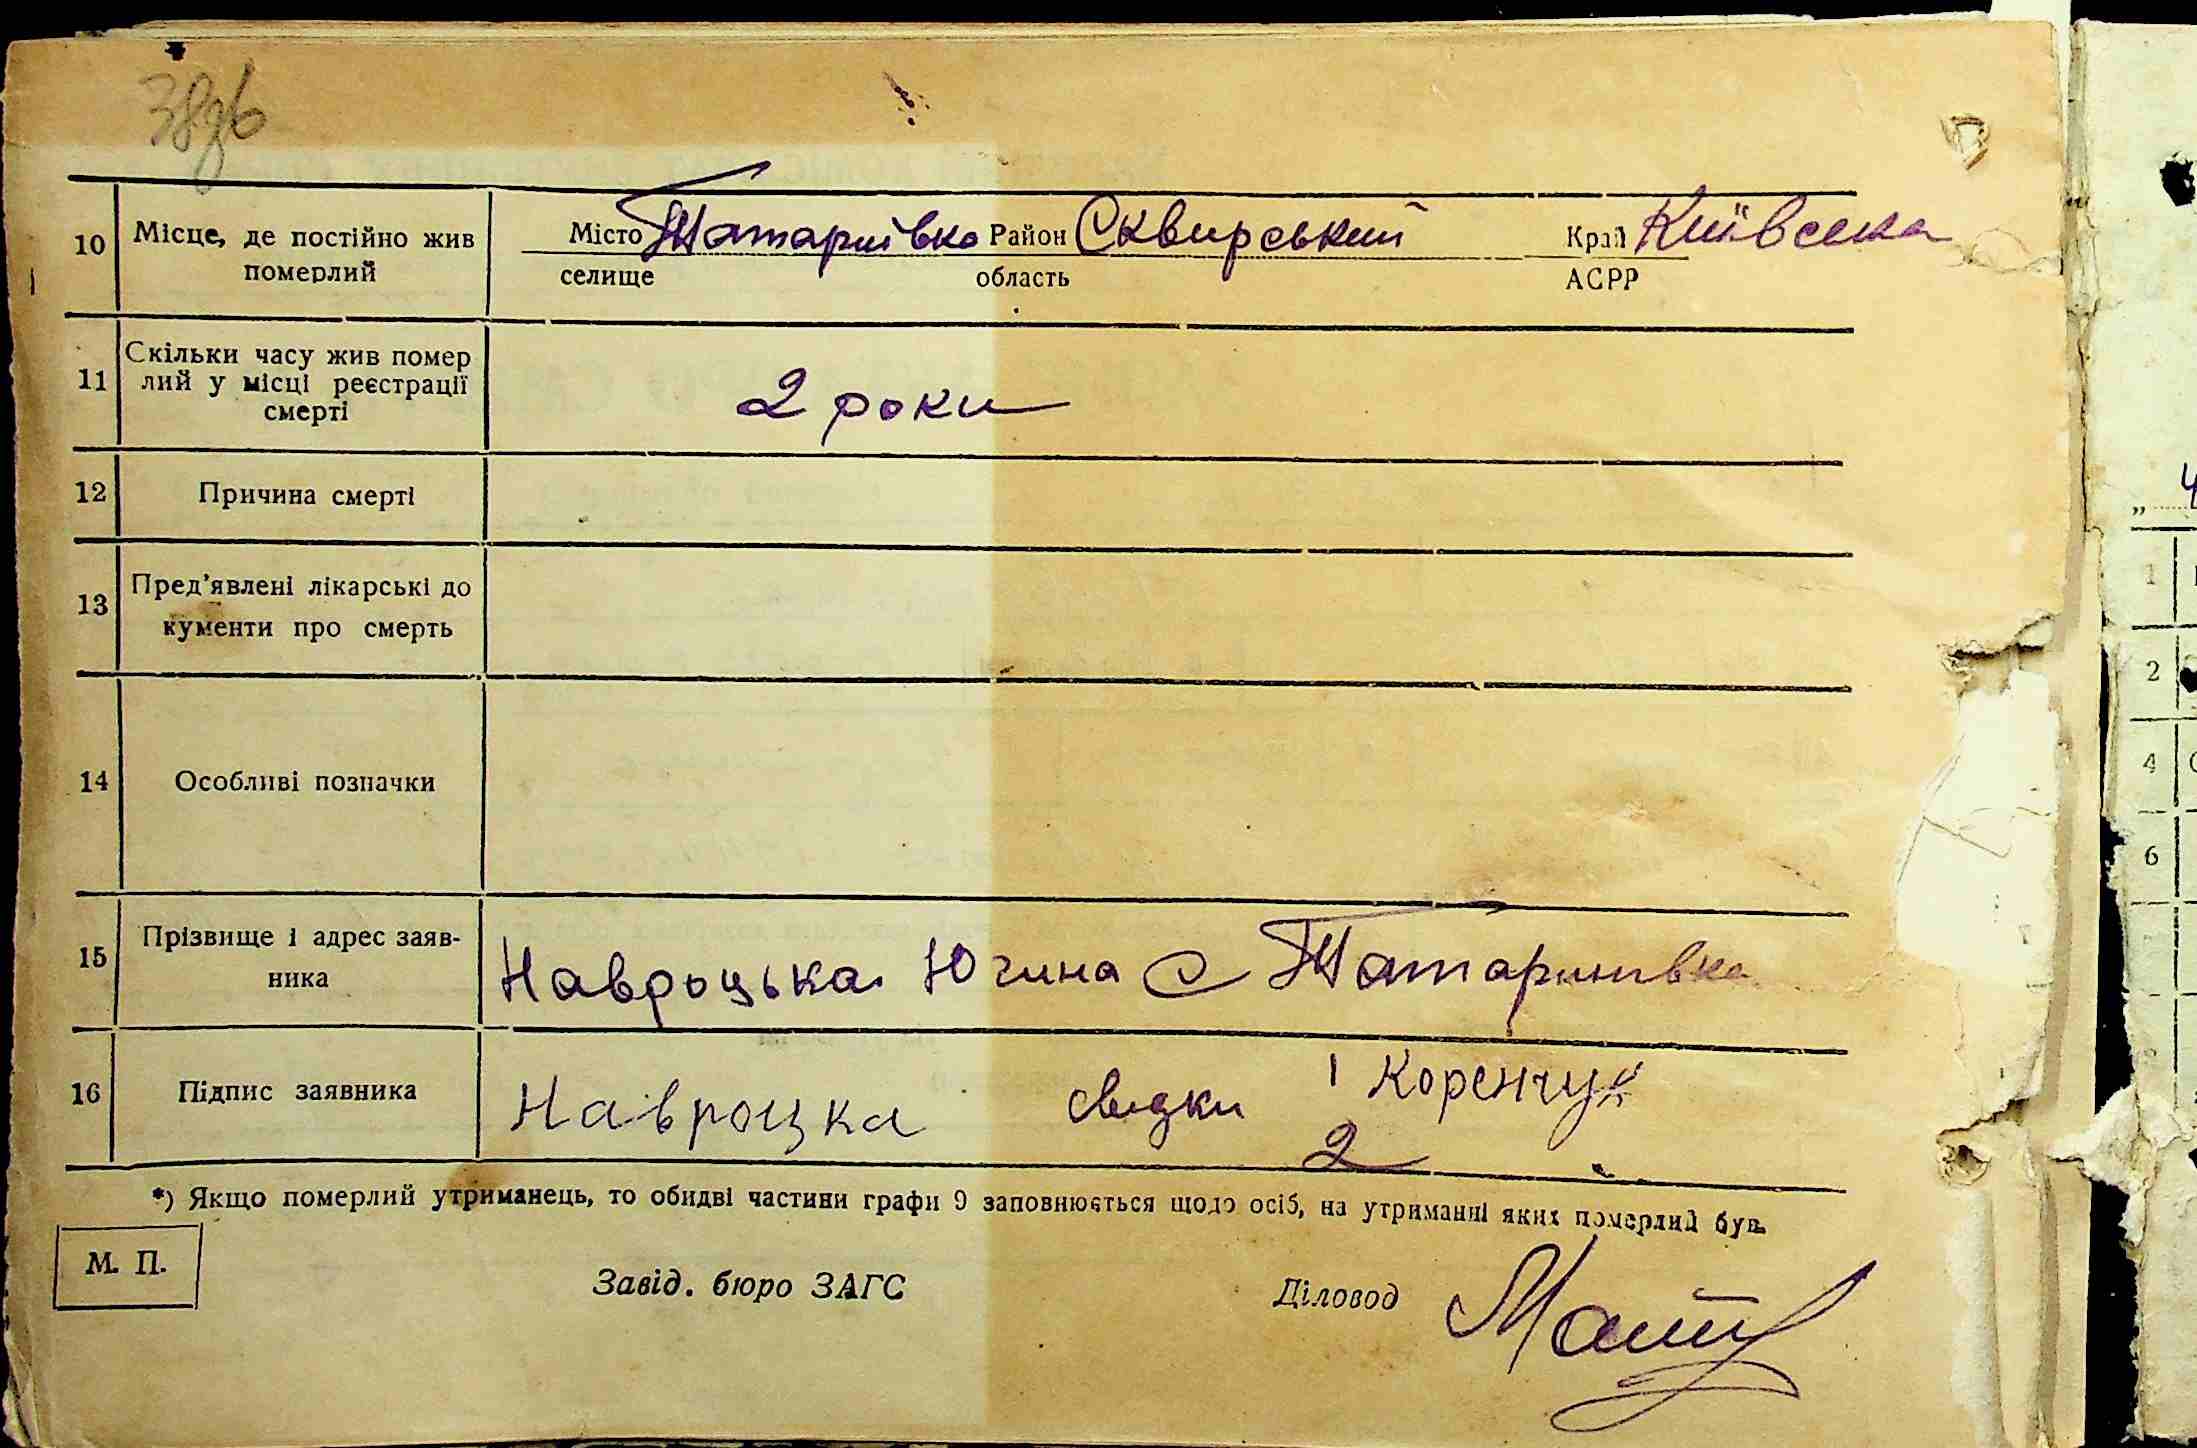 10 Місце, де постійно жив Місто Татаринівка Район Сквирський Край Київська
померлий селище область АСРР
11 Скільки часу жив помер
лий у місці реєстрації
смерті
2 роки
12 Причина смерті
13 Пред'явлені лікарські до
кументи про смерть
14 Особливі позначки
15 Прізвище і адрес заяв-
ника
Навроцька Югина с Татаринівка
16 Підпис заявника Навроцка свидки 1 Коренчук
2
*) Якщо померлий утриманець, то обидві частини графи 9 заповнюється щодо осіб, на утриманні яких померлий був.
М. П.
Завід. бюро ЗАГС Діловод
„ 4
1
2
4
6